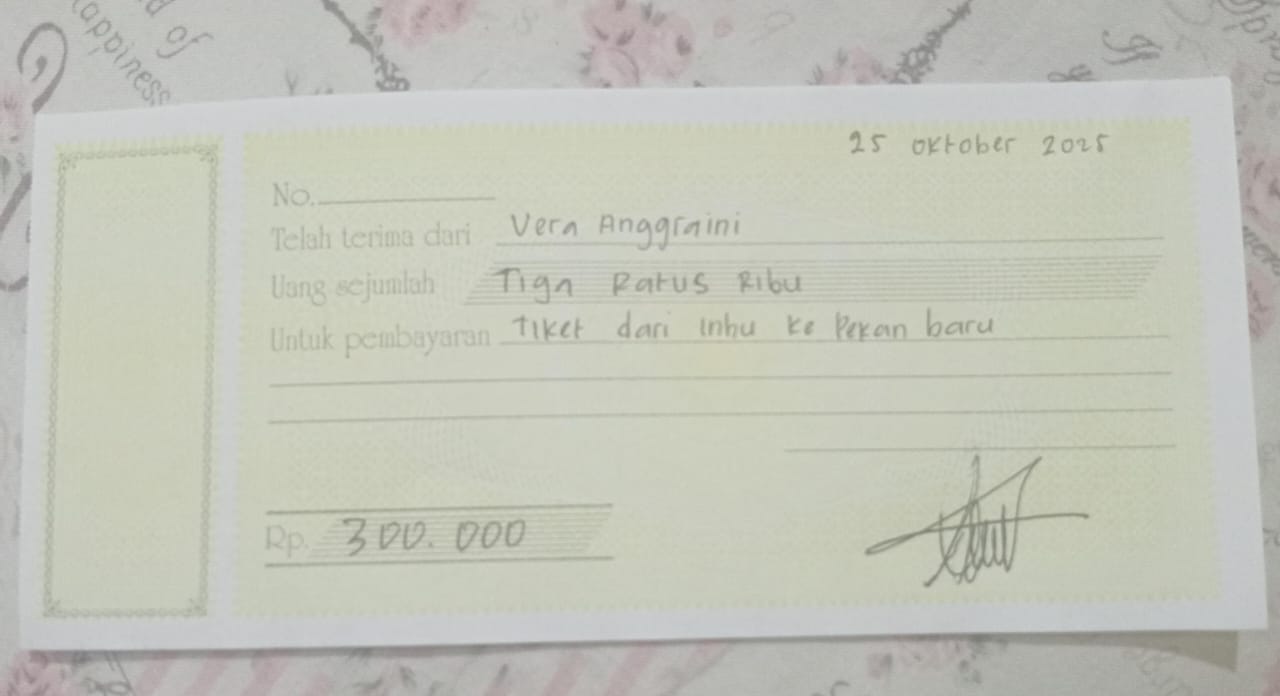 d of
appiness
If
25 oktober 2025
No.
Telah terima dari Vera Anggraini
Uang sejumlah Tiga Ratus Ribu
Untuk pembayaran Tiket dari inhu ke Pekan baru
Rp. 300.000